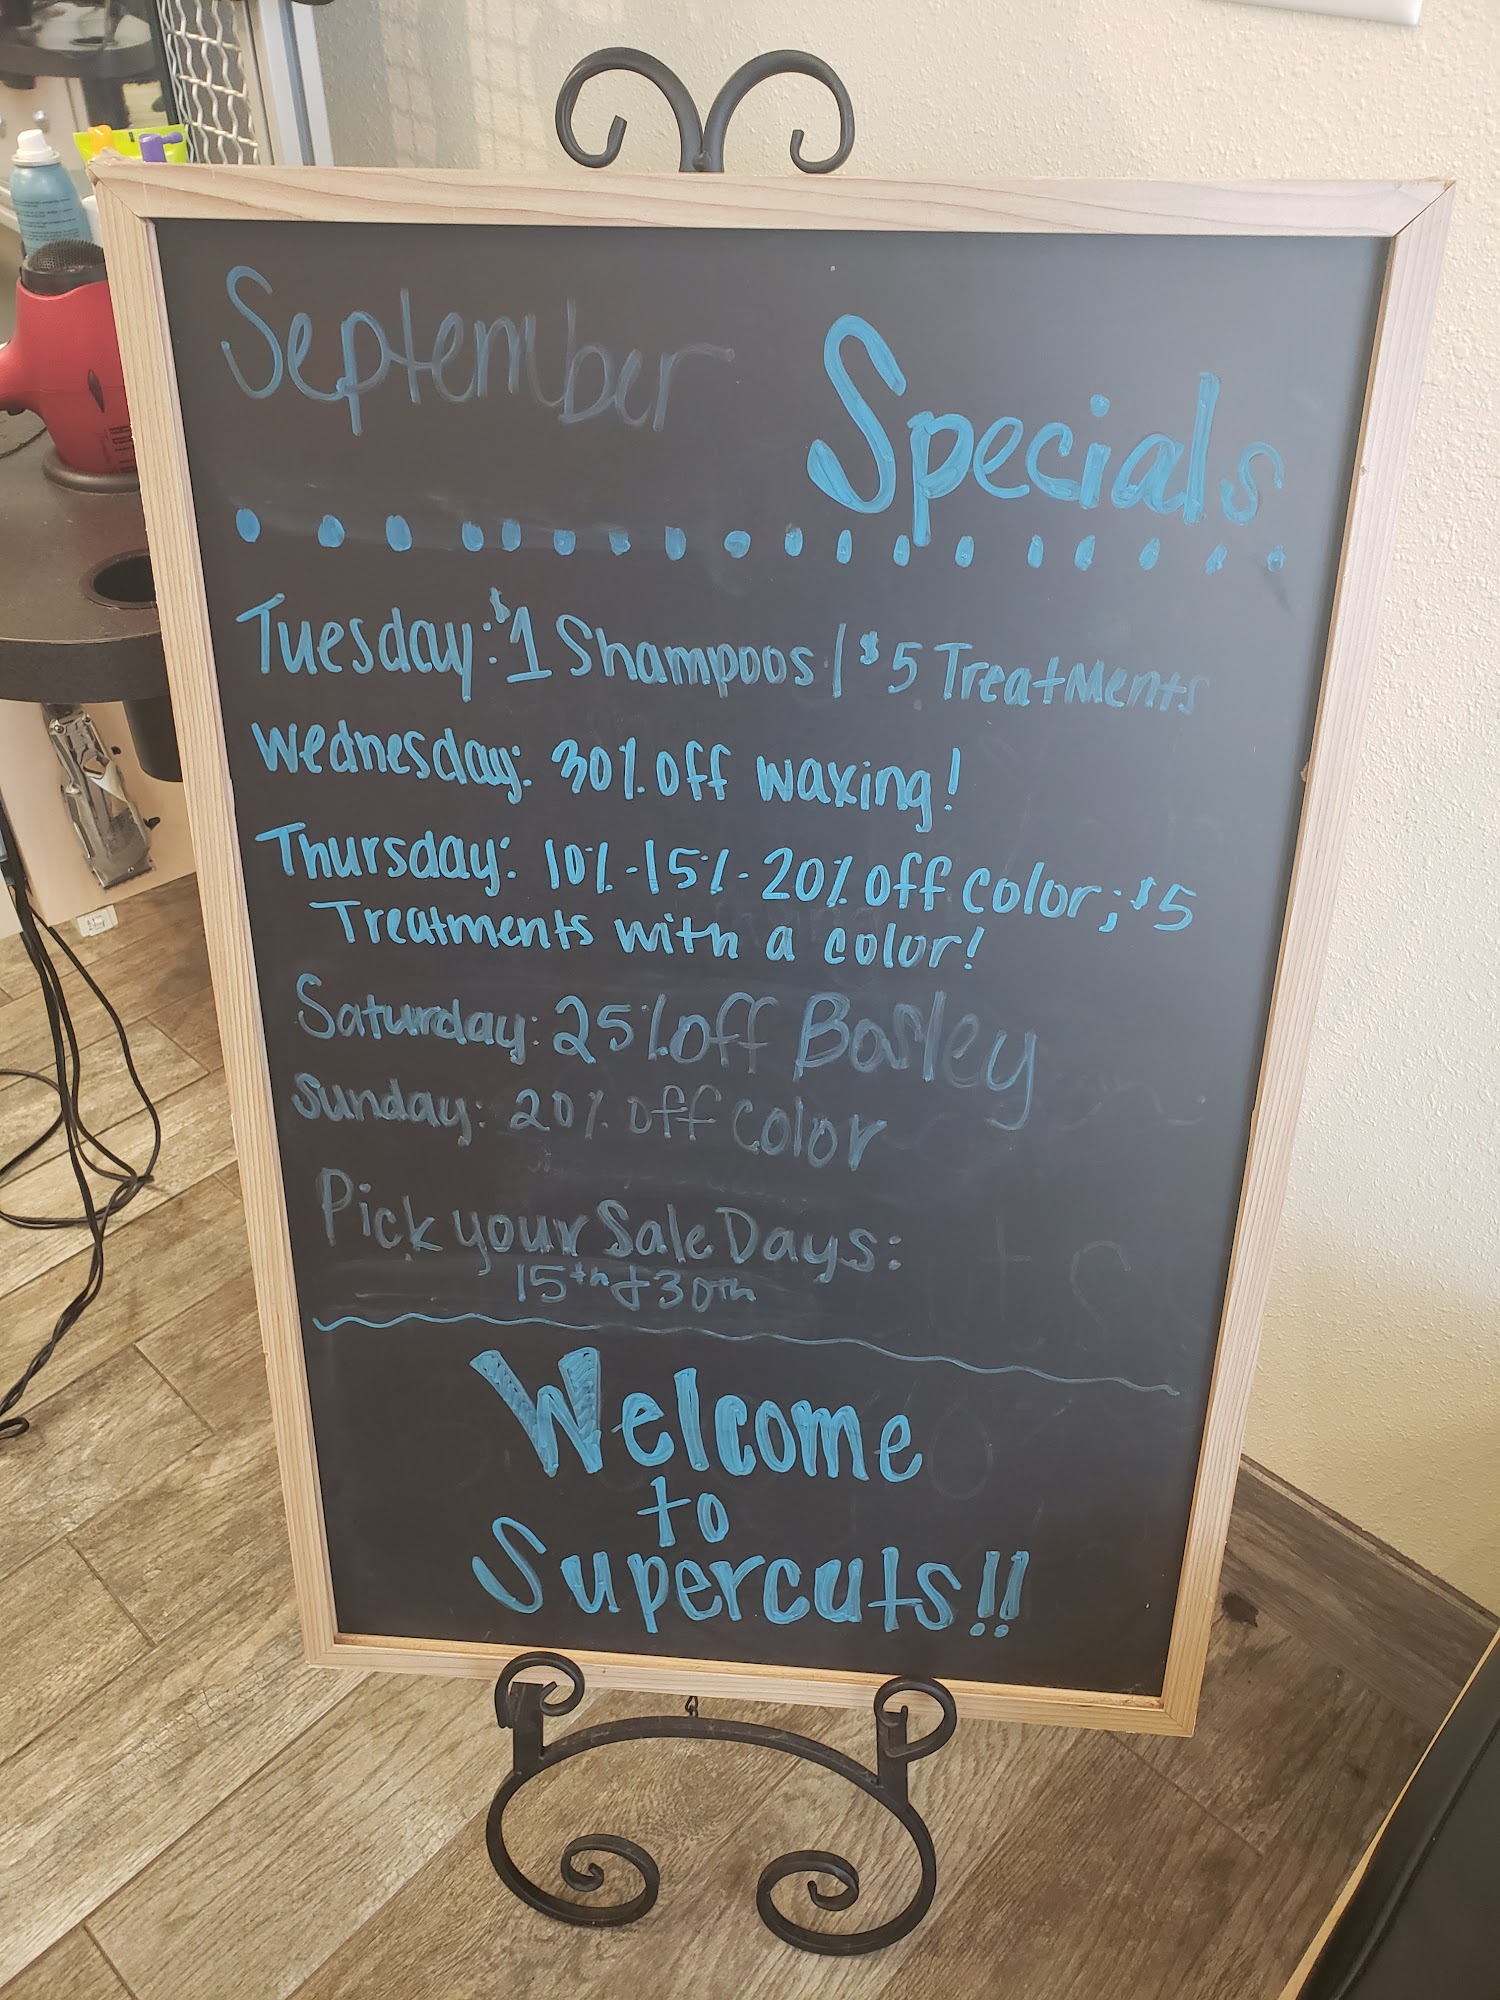 September Specials
Tuesday: $1 Shampoos / $5 Treatments
Wednesday: 30% off waxing!
Thursday: 10% - 15% - 20% off color; $5
Treatments with a color!
Saturday: 25% off Bosley
Sunday: 20% off color
Pick your Sale Days:
15th & 30th
Welcome
to
Supercuts!!